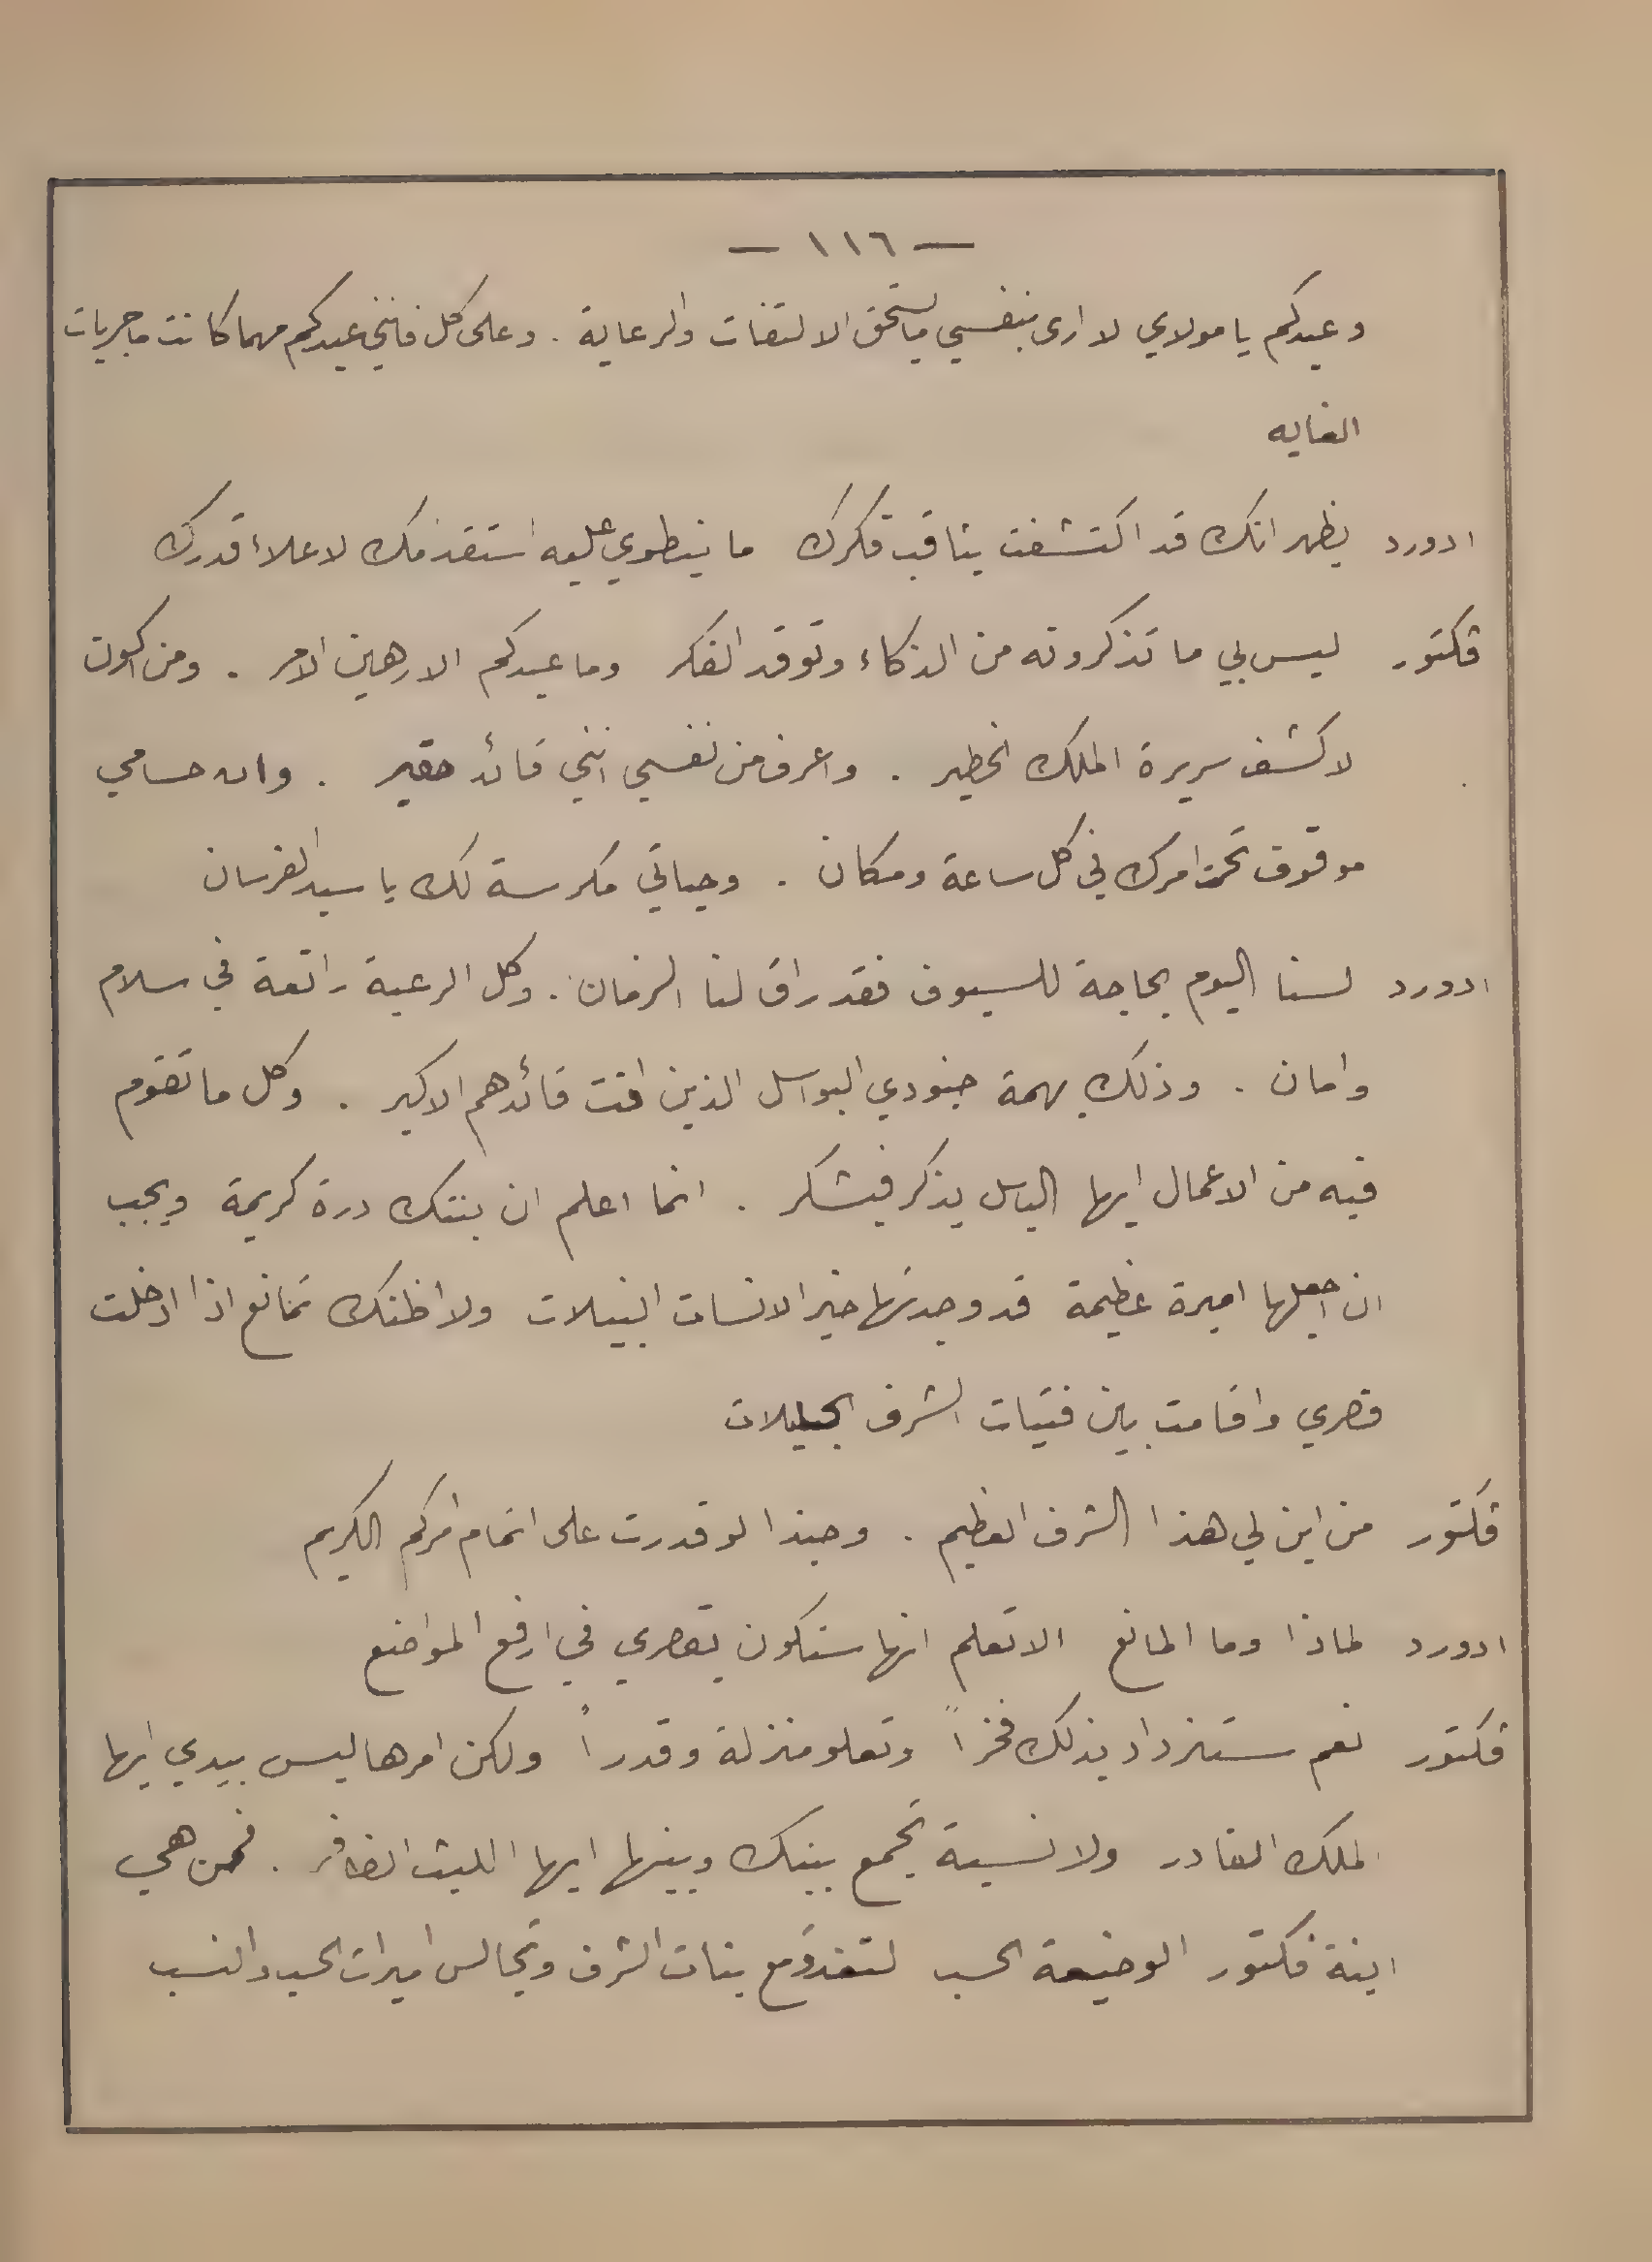 — ١١٦ —
وعبدكم يا مولاي لا ارى بنفسي ما يستحق الالتفات والرعاية . وعلى كل فانني عبدكم مهما كانت ماجريات
الغايه
ادورد يظهر انك قد اكتشفت بثاقب فكرك ما ينطوي عليه استقدامك لاعلاء قدرك
فكتور ليس بي ما تذكرونه من الذكاء وتوقد الفكر وما عبدكم الا رهين الامر . ومن اكون
لاكشف سريرة الملك الخطير . واعرف من نفسي انني قائد حقير . وان حسامي
موقوف تحت امرك في كل ساعة ومكان . وحياتي مكرسة لك يا سيد الفرسان
ادورد لسنا اليوم بحاجة للسيوف فقد راق لنا الزمان . وكل الرعية راتعة في سلام
وامان . وذلك بهمة جنودي البواسل الذين انت قائدهم الاكبر . وكل ما تقوم
فيه من الاعمال ايها الباسل يذكر فيشكر . انما اعلم ان بنتك درة كريمة ويجب
ان اجعلها اميرة عظيمة قد وجدتها خير الانسات النبيلات ولا اظنك تمانع اذا ادخلت
قصري واقامت بين فتيات الشرف الجميلات
فكتور من اين لي هذا الشرف العظيم . وحبذا لو قدرت على اتمام امركم الكريم
ادورد لماذا وما المانع الا تعلم انها ستكون بقصري في ارفع المواضع
فكتور نعم ستزداد بذلك فخراً وتعلو منزلة وقدراً ولكن امرها ليس بيدي ايها
الملك القادر ولا نسبة تجمع بينك وبينها ايها الليث الظافر . فمن هي
ابنة فكتور الوضيعة الحسب لتغدو مع بنات الشرف وتجالس اميرات الحسب والنسب